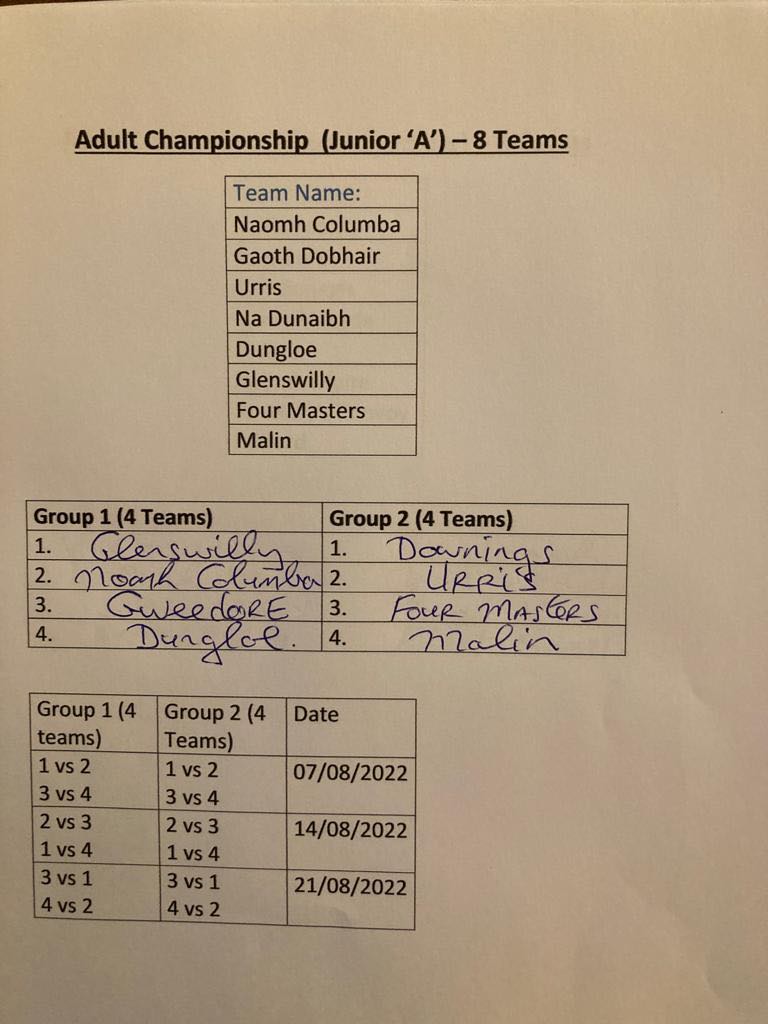 Adult Championship (Junior ‘A’) – 8 Teams
Team Name:
Naomh Columba
Gaoth Dobhair
Urris
Na Dunaibh
Dungloe
Glenswilly
Four Masters
Malin
Group 1 (4 Teams) Group 2 (4 Teams)
1. Glenswilly 1. Downings
2. Noamh Columba 2. URRIS
3. GweedORE 3. FOUR MASTERS
4. Dungloe. 4. Malin
Group 1 (4 Group 2 (4 Date
teams) Teams)
1 vs 2 1 vs 2 07/08/2022
3 vs 4 3 vs 4
2 vs 3 2 vs 3 14/08/2022
1 vs 4 1 vs 4
3 vs 1 3 vs 1 21/08/2022
4 vs 2 4 vs 2